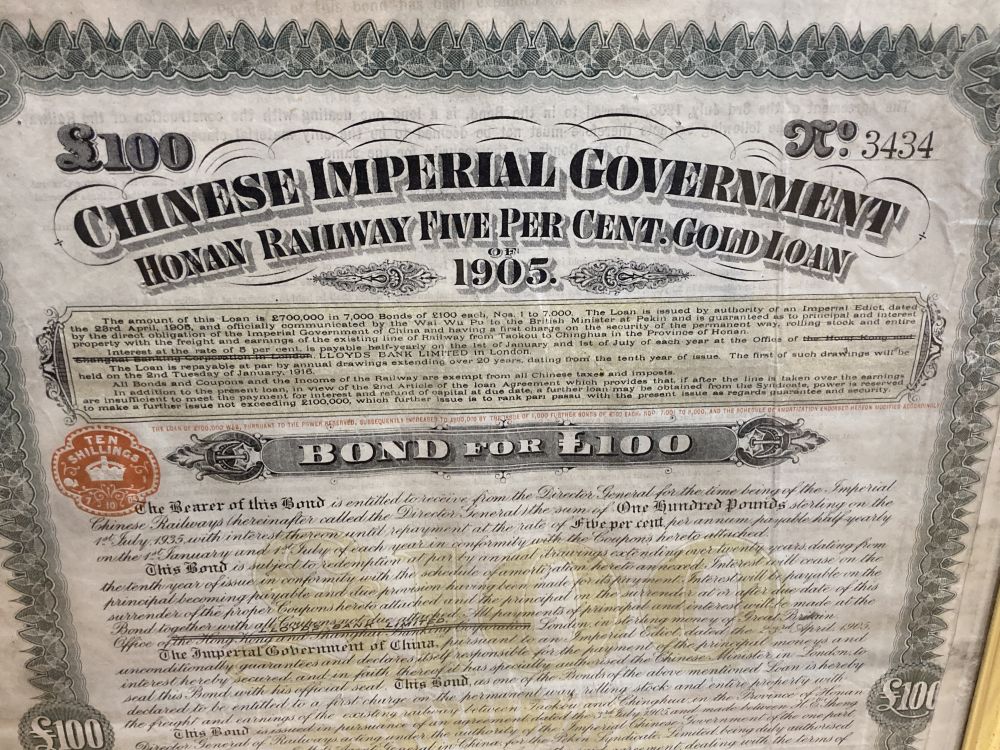 £100
No. 3434
CHINESE IMPERIAL GOVERNMENT
HONAN RAILWAY FIVE PER CENT. GOLD LOAN
OF
1905.
The amount of this Loan is £700,000 in 7,000 Bonds of £100 each, Nos. 1 to 7.000. The Loan is issued by authority of an Imperial Edict, dated
the 23rd April, 1905, and officially communicated by the Wai Wu Pu to the British Minister at Pekin and is guaranteed as to principal and interest
by the direct obligation of the Imperial Government of China and having a first charge on the security of the permanent way, rolling stock and entire
property with the freight and earnings of the existing line of Railway from Taokou to Chinghua in the Province of Honan.
Interest at the rate of 5 per cent. is payable half-yearly on the 1st of January and 1st of July of each year at the Office of the Hong Kong and
Shanghai Banking Corporation LLOYDS BANK LIMITED in London.
The Loan is repayable at par by annual drawings extending over 20 years, dating from the tenth year of issue. The first of such drawings will be
held on the 2nd Tuesday of January, 1916.
All Bonds and Coupons and the Income of the Railway are exempt from all Chinese taxes and imposts.
In addition to the present loan, in view of the 2nd Article of the loan Agreement which provides that, if after the line is taken over the earnings
are insufficient to meet the payment for interest and refund of capital at due date, a further loan may be obtained from the Syndicate, power is reserved
to make a further issue not exceeding £100,000, which further issue is to rank pari passu with the present issue as regards guarantee and security.
THE LOAN OF £700,000 WAS, PURSUANT TO THE POWER RESERVED, SUBSEQUENTLY INCREASED TO £800,000 BY THE ISSUE OF 1,000 FURTHER BONDS OF £100 EACH, NOS. 7,001 TO 8,000, AND THE SCHEDULE OF AMORTIZATION ENDORSED HEREON MODIFIED ACCORDINGLY
TEN
SHILLINGS
BOND FOR £100
The Bearer of this Bond is entitled to receive from the Director General for the time being of the Imperial
Chinese Railways (hereinafter called the Director General) the sum of One Hundred Pounds sterling on the
1st July, 1935, with interest thereon until repayment at the rate of Five per cent, per annum, payable half-yearly
on the 1st January and 1st July of each year in conformity with the Coupons hereto attached.
This Bond is subject to redemption at par by annual drawings extending over twenty years, dating from
the tenth year of issue, in conformity with the schedule of amortization hereto annexed. Interest will cease on the
principal becoming payable and due provision having been made for its payment. Interest will be payable on the
surrender of the proper Coupons hereto attached and the principal on the surrender at or after due date of this
Bond together with all Coupons. All payments of principal and interest will be made at the
Office of the Hong Kong and Shanghai Banking London, in sterling money of Great Britain
The Imperial Government of China, pursuant to an Imperial Edict dated the 23rd April, 1905,
unconditionally guarantees and declares itself responsible for the payment of the principal moneys and
interest hereby secured and in faith thereof it has specially authorised the Chinese Minister in London to
seal this Bond with his official seal. This Bond, as one of the Bonds of the above mentioned Loan is hereby
declared to be entitled to a first charge on the permanent way, rolling stock and entire property with
the freight and earnings of the existing railway between Taokou and Chinghua, in the Province of Honan
This Bond is issued in pursuance of an agreement dated the 3rd July 1905 and made between H.E. Sheng
Director General of Railways acting under the authority of the Imperial Chinese Government of the one part
£100
£100